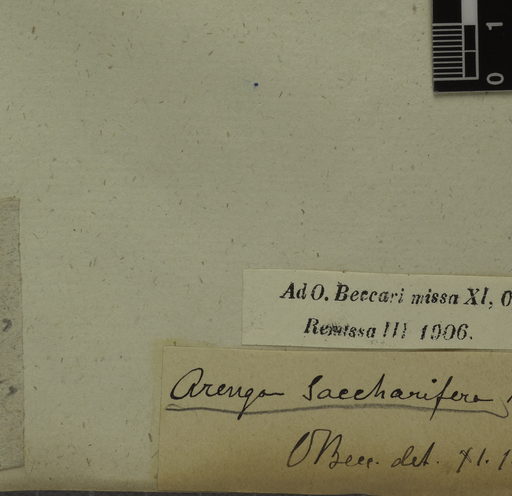 0 1
Ad O. Beccari missa XI, 0
Remissa III 1906.
Arenga saccharifera
OBecc. det. XI. 1